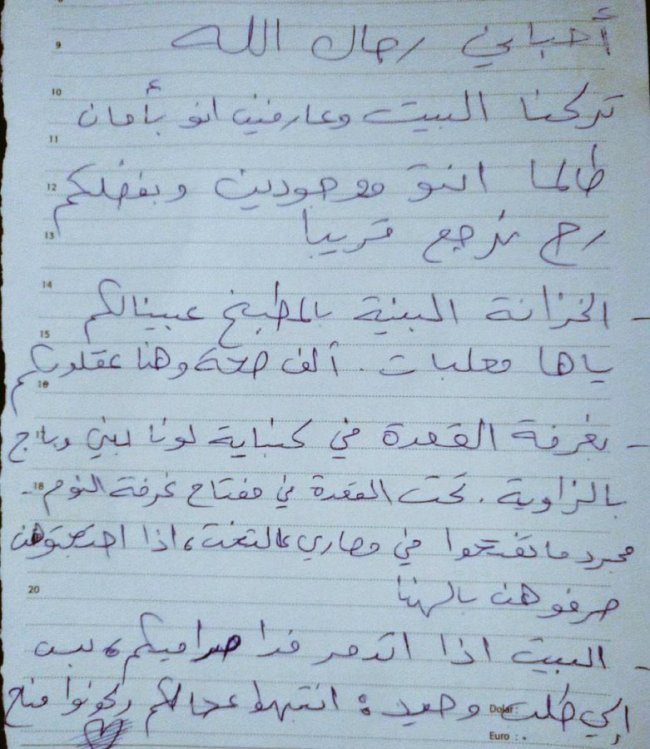 أحبابي رجال الله
تركنا البيت وعارفين انو بأمان
طالما انتو موجودين وبفضلكم
رح نرجع قريبا
- الخزانة البنية بالمطبخ عبينالكم
ياها معلبات. ألف صحة وهنا عقلوبكم
- بغرفة القعدة في كنباية لونا بني وبيج
بالزاوية. تحت القعدة في مفتاح غرفة النوم.
مجرد ما تفتحوا في مصاري عالتخت، اذا احتجتوهن
صرفوهن بالهنا
- البيت اذا اتدمر فدا صراميكم، بس
إلي طلب وحيد: انتبهوا عحالكم وكونوا مناح
9
10
11
12
13
14
15
16
18
20
Dolar :
Euro :